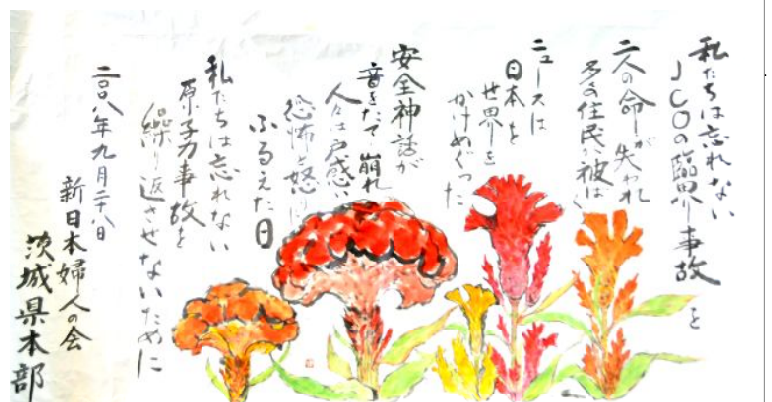 私たちは忘れない
JCOの臨界事故を
二人の命が失われ
多くの住民が被ばく
ニュースは
日本を
世界を
かけめぐった
安全神話が
音をたて崩れ
人々は戸惑い
恐怖と怒りに
ふるえた日
私たちは忘れない
原子力事故を
繰り返させないために
二〇〇八年九月二十八日
新日本婦人の会
茨城県本部